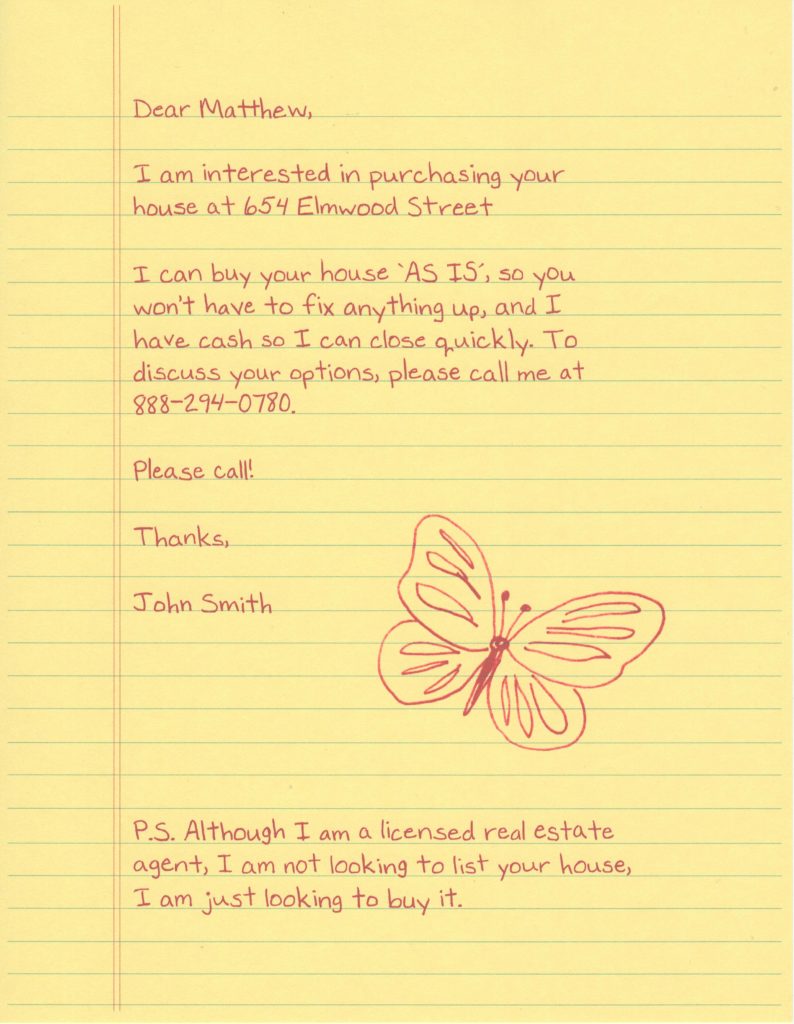 Dear Matthew,
I am interested in purchasing your
house at 654 Elmwood Street
I can buy your house `AS IS´, so you
won't have to fix anything up, and I
have cash so I can close quickly. To
discuss your options, please call me at
888-294-0780.
Please call!
Thanks,
John Smith
P.S. Although I am a licensed real estate
agent, I am not looking to list your house,
I am just looking to buy it.